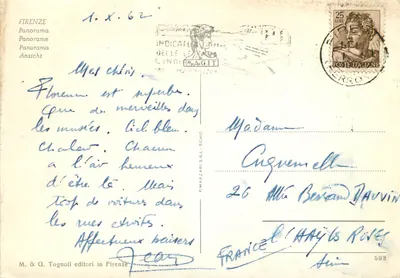 FIRENZE
Panorama
Panorama
Panorama
Ansicht
1.X.62
Mes chéris
Florence est superbe.
Que de merveilles dans
les musées. Ciel bleu.
Chaleur. Chacun
a l'air heureux
d'être là. Mais
trop de voitures dans
les rues étroites.
Affectueux baisers
Jean
M. & G. Tognoli editori in Firenze
INDICATE
25
POSTE ITALIANE
Madame
26 Allée Bernard DAUVIN
L'HAŸ LES ROSES
Seine
FRANCE